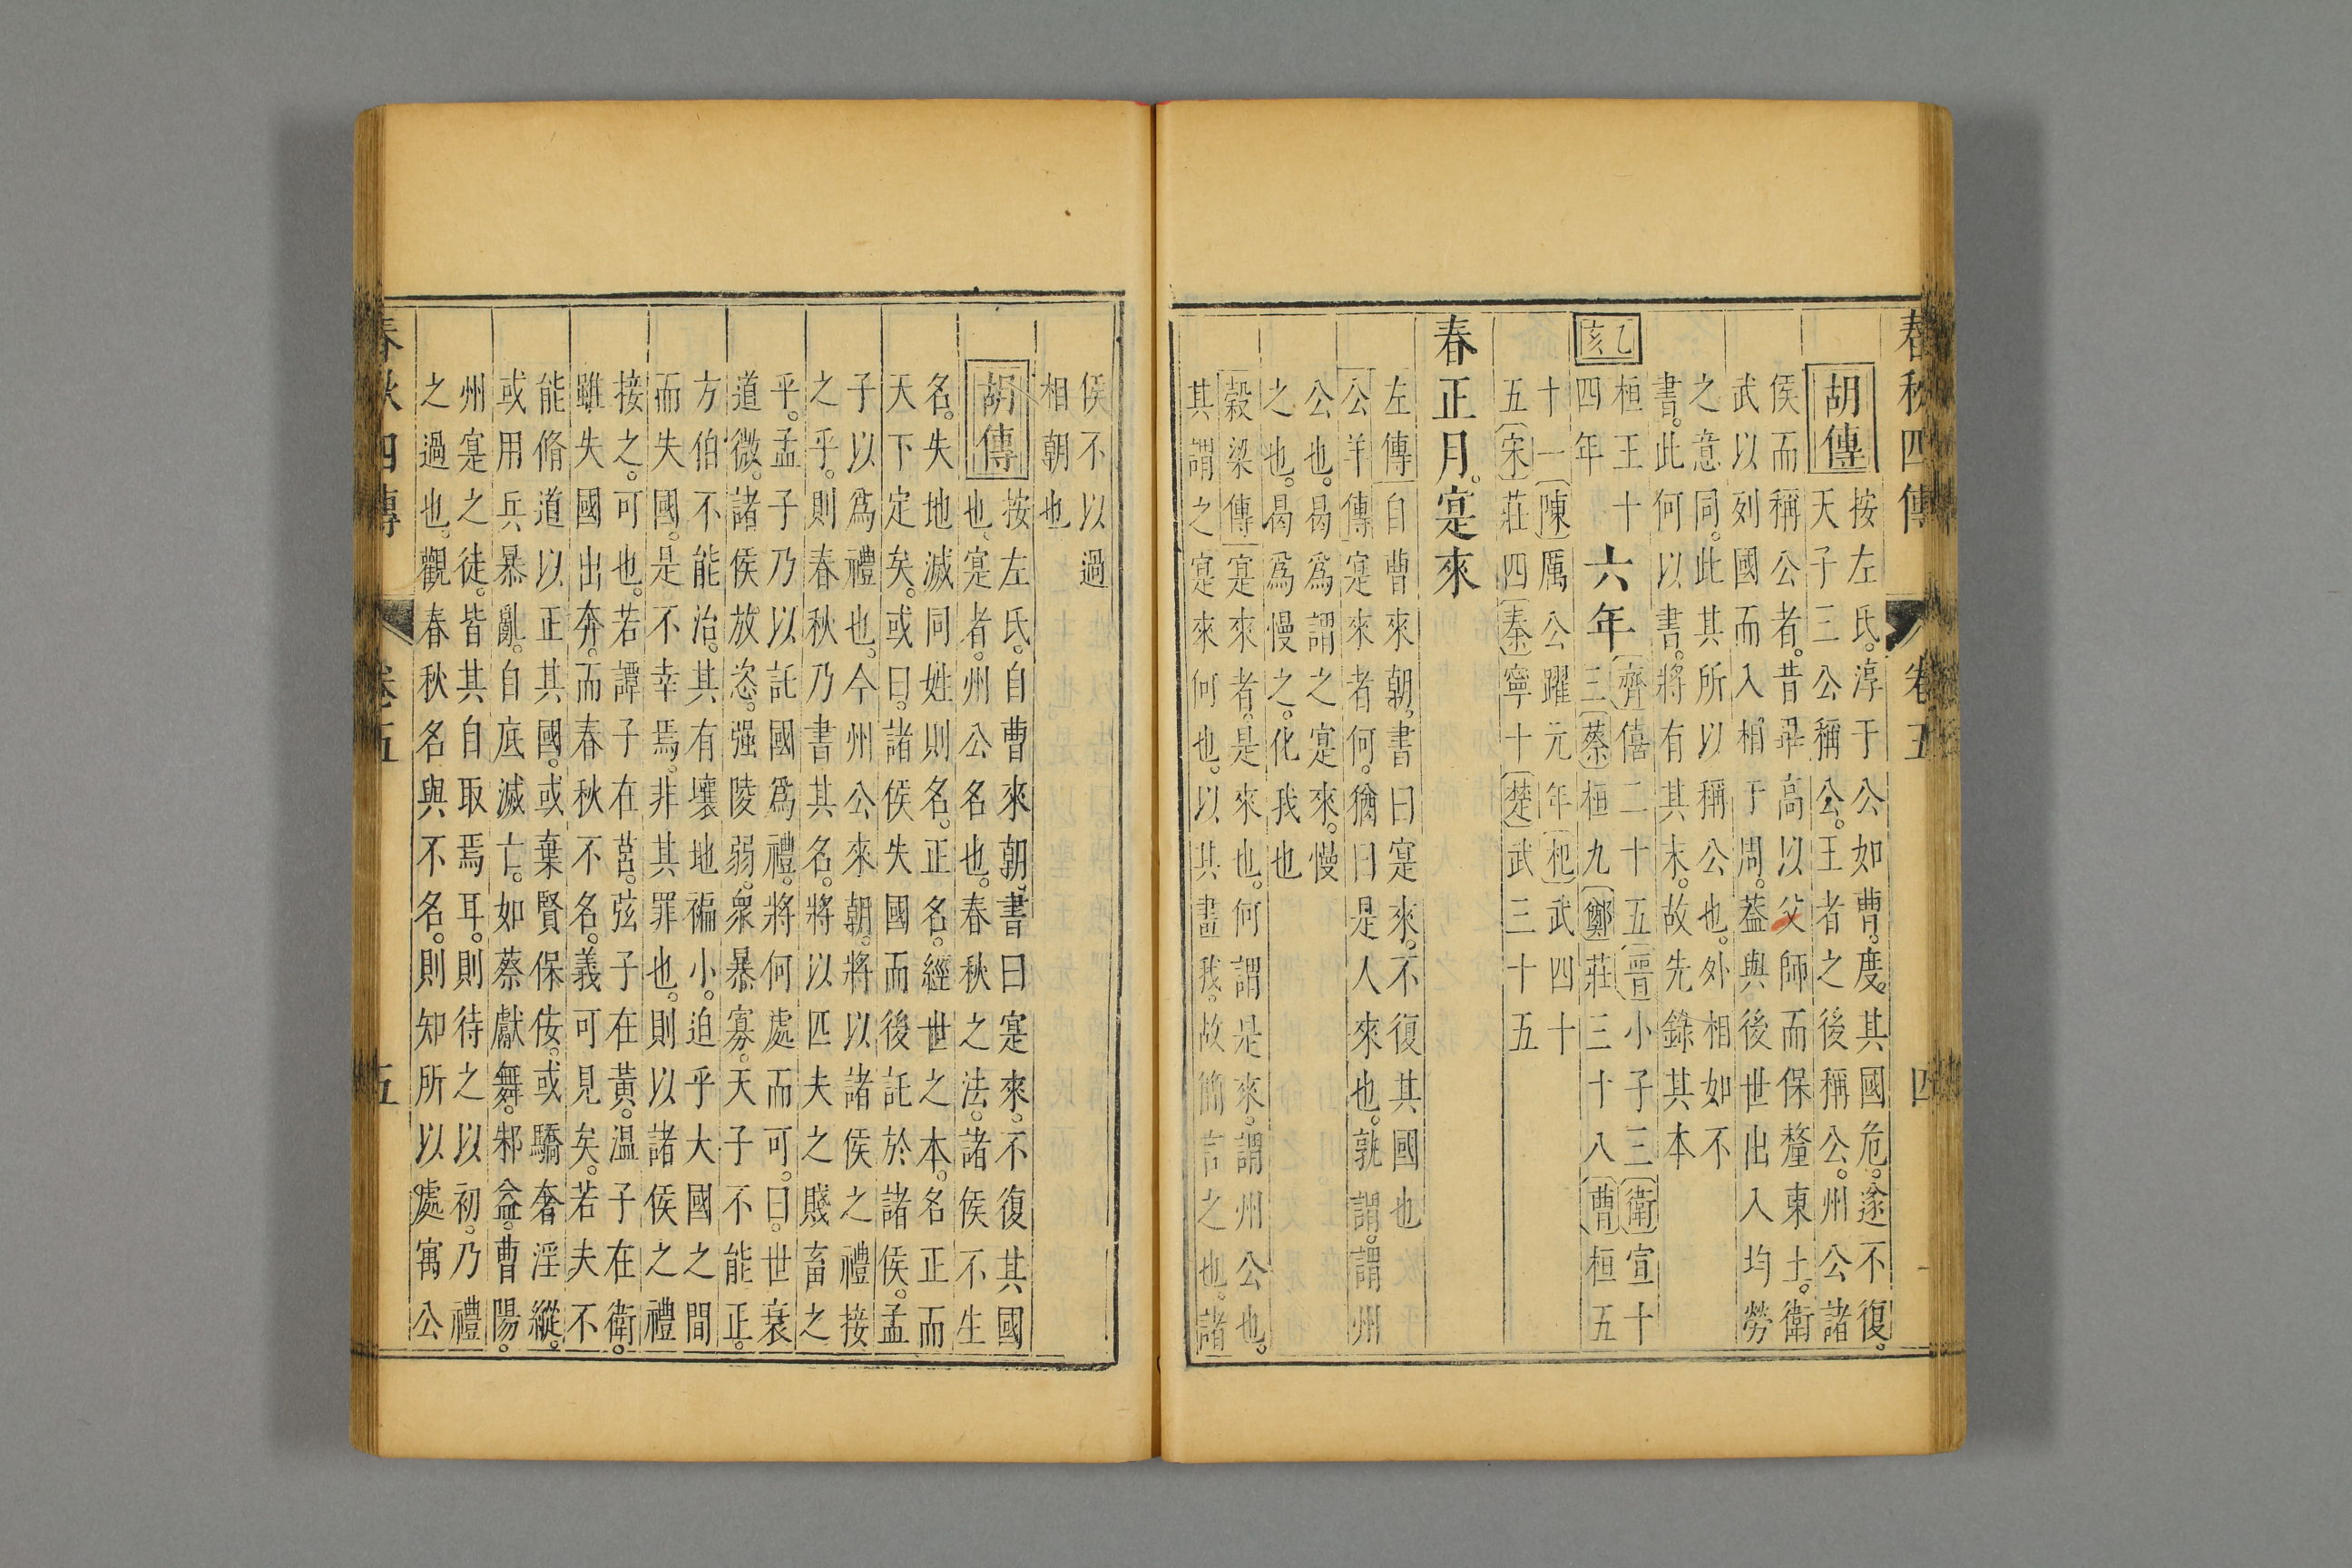 春秋四傳 卷五 四
胡傳
按左氏。淳于公如曹。度其國危。遂不復。
天子三公稱公。王者之後稱公。州公諸
侯而稱公者。昔畢高以父師而保釐東土。衛
武以列國而入相于周。葢與後世出入均勞
之意同。此其所以稱公也。外相如不
書。此何以書。將有其末。故先錄其本
乙亥
桓王十四年
六年
齊僖二十五 晉小子三 衛宣十
三 蔡桓九 鄭莊三十八 曹桓五
十一 陳厲公躍元年 杞武四十
五 宋莊四 秦寧十 楚武三十五
春正月。寔來
左傳 自曹來朝。書曰寔來。不復其國也
公羊傳 寔來者何。猶曰是人來也。孰謂。謂州
公也。曷爲謂之寔來。慢
之也。曷爲慢之。化我也
穀梁傳 寔來者。是來也。何謂是來。謂州公也。
其謂之寔來何也。以其畫我。故簡言之也。諸
侯不以過
相朝也
胡傳
按左氏。自曹來朝。書曰寔來。不復其國
也。寔者。州公名也。春秋之法。諸侯不生
名。失地滅同姓則名。正名。經世之本。名正而
天下定矣。或曰。諸侯失國而後託於諸侯。孟
子以爲禮也。今州公來朝。將以諸侯之禮接
之乎。則春秋乃書其名。將以匹夫之賤畜之
乎。孟子乃以託國爲禮。將何處而可。曰。世衰
道微。諸侯放恣。强陵弱。衆暴寡。天子不能正。
方伯不能治。其有壤地褊小。迫乎大國之間
而失國。是不幸焉。非其罪也。則以諸侯之禮
接之。可也。若譚子在莒。弦子在黃。温子在衛。
雖失國出奔。而春秋不名。義可見矣。若夫不
能脩道以正其國。或棄賢保佞。或驕奢淫縱。
或用兵暴亂。自底滅亡。如蔡獻舞。邾益。曹陽。
州寔之徒。皆其自取焉耳。則待之以初。乃禮
之過也。觀春秋名與不名。則知所以處寓公
春秋四傳 卷五 五